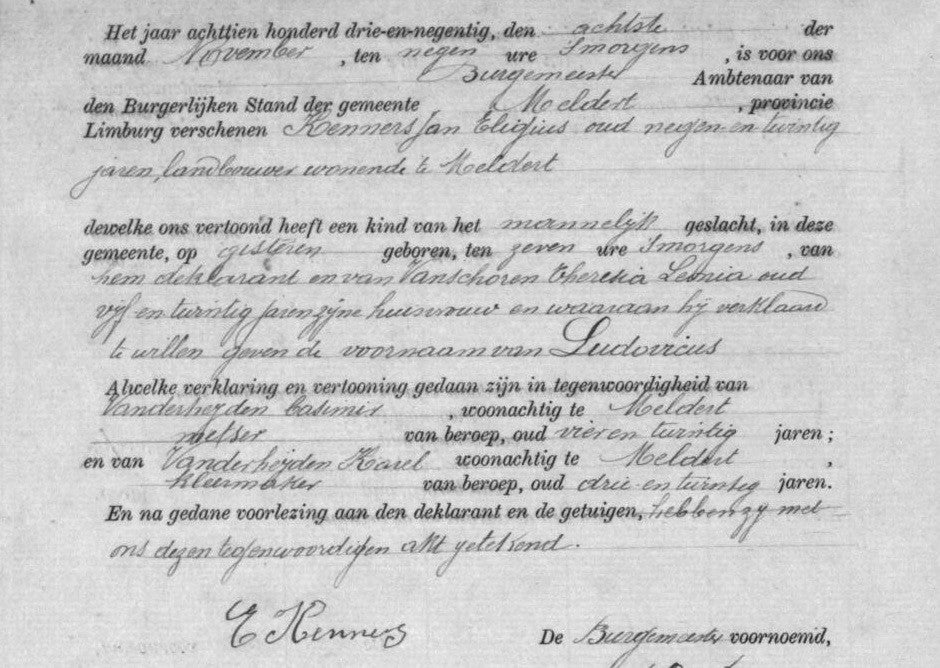 Het jaar achttien honderd drie-en-negentig, den achtste der
maand November, ten negen ure Smorgens, is voor ons
Burgemeester Ambtenaar van
den Burgerlijken Stand der gemeente Meldert, provincie
Limburg verschenen Kenners Jan Eligius oud negen-en-twintig
jaren, landbouwer wonende te Meldert
dewelke ons vertoond heeft een kind van het mannelijk geslacht, in deze
gemeente, op gisteren geboren, ten zeven ure Smorgens, van
hem deklarant en van Vanschoren Theresia Leonia oud
vijf en twintig jaren zijne huisvrouw en waaraan hij verklaard
te willen geven de voornaam van Ludovicus
Alwelke verklaring en vertooning gedaan zijn in tegenwoordigheid van
Vanderheyden Casimir, woonachtig te Meldert
metser van beroep, oud vier en twintig jaren;
en van Vanderheyden Karel woonachtig te Meldert,
kleermaker van beroep, oud drie en twintig jaren.
En na gedane voorlezing aan den deklarant en de getuigen, hebben zij met
ons dezen tegenwoordigen akt getekend.
E Kenners
De Burgemeester voornoemd,